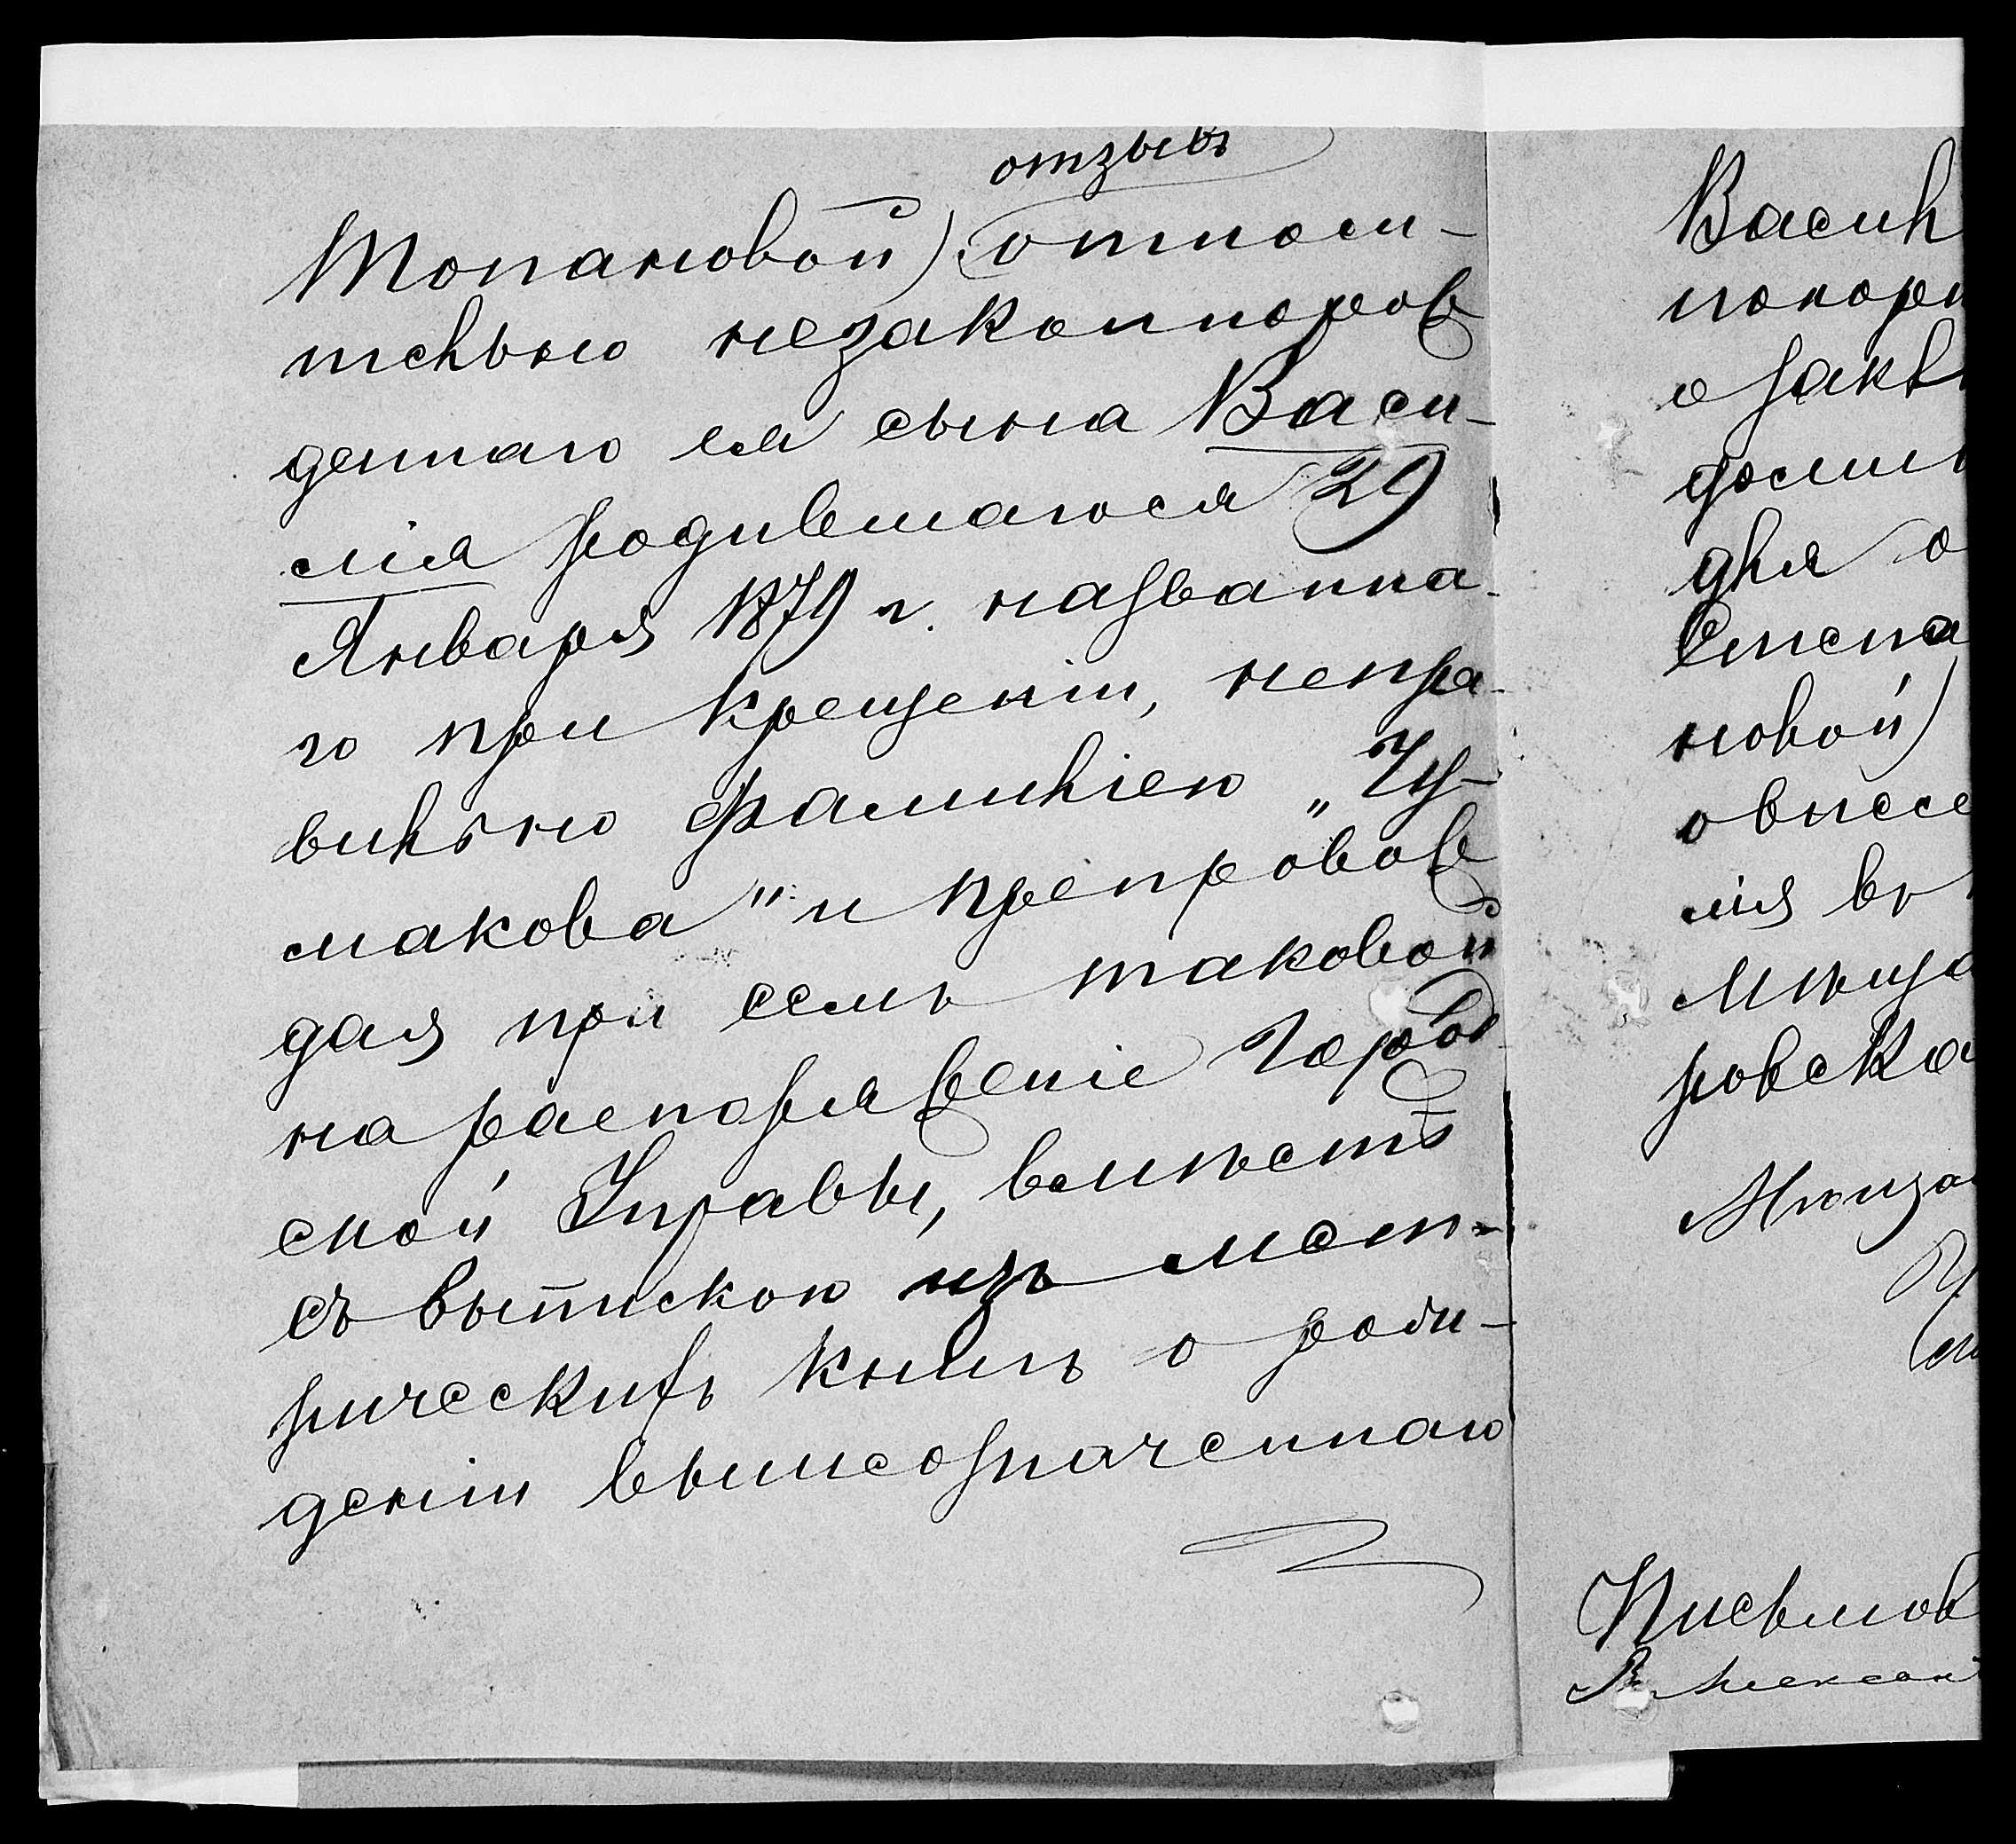 отзывъ
Топановой) относи-
тельно незаконнорож
деннаго ея сына Васи-
лія родившагося 29
Января 1879 г. названна-
го при крещеніи, непра-
вильно фамиліею „Чу-
макова" и препровож
дая при семъ таковой
на распоряженіе Город
ской Управы, вмѣстѣ
съ выпискою изъ мет-
рическихъ книгъ о рож-
деніи вышеозначеннаго
Васил
покорн
о
для о
Степа
новой)
о внесе
лія въ
Мѣща
ровска
Мѣща
Письмов
Алексан